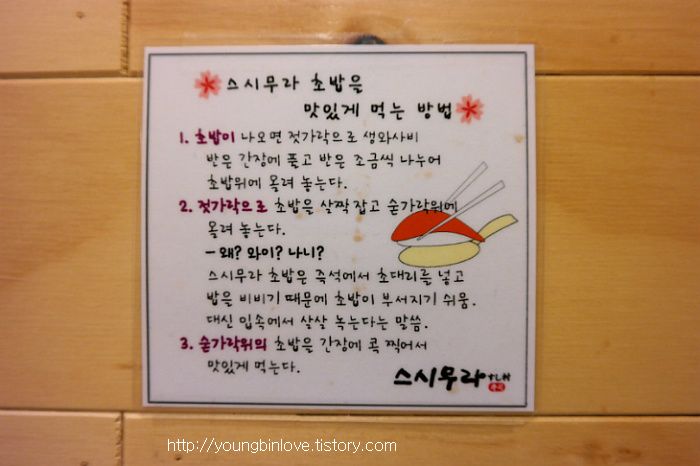 스시무라 초밥을
맛있게 먹는 방법
1. 초밥이 나오면 젓가락으로 생와사비
반은 간장에 풀고 반은 조금씩 나누어
초밥위에 올려 놓는다.
2. 젓가락으로 초밥을 살짝 잡고 숟가락위에
올려 놓는다.
- 왜? 와이? 나니?
스시무라 초밥은 즉석에서 초대리를 넣고
밥을 비비기 때문에 초밥이 부서지기 쉬움.
대신 입속에서 살살 녹는다는 말씀.
3. 숟가락위의 초밥을 간장에 콕 찍어서
맛있게 먹는다.
스시무라
http://youngbinlove.tistory.com